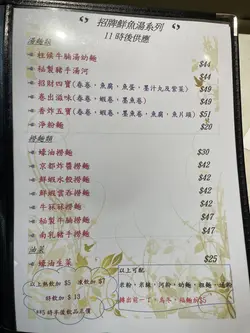 招牌鮮魚湯系列
11時後供應
湯麵類
柱候牛腩湯幼麵 $44
秘製豬手湯河 $44
招財四寶(春卷、魚腐、魚蛋、墨汁丸及紫菜) $49
卷出滋味(春卷、蝦卷、墨魚卷) $49
香炸五寶(春卷、蝦卷、墨魚卷、魚腐、魚片頭) $51
淨粉麵 $29
撈麵類
蠔油撈麵 $30
京都炸醬撈麵 $42
鮮蝦水餃撈麵 $47
鮮蝦雲吞撈麵 $47
牛丸撈麵
秘製牛腩撈麵 $47
南乳豬手撈麵 $47
油菜
蠔油生菜 $25
以上熱飲加 $5 凍飲加 $7
例飲加 $13
以上可配
米粉、米線、河粉、幼麵、粗麵、油麵